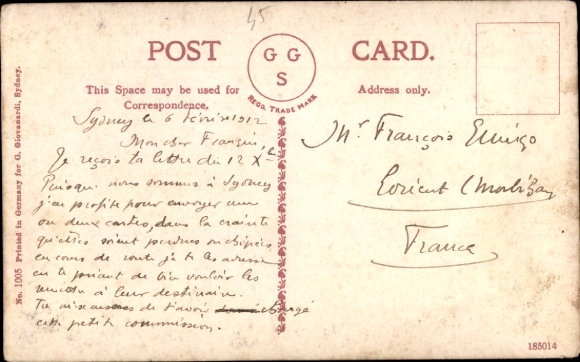 45
POST CARD.
G G
S
REGD. TRADE MARK
This Space may be used for
Correspondence.
Address only.
No. 1005 Printed in Germany for G. Giovanardi, Sydney.
Sydney le 6 février 1912
Mon cher François,
Je reçois ta lettre du 12 Xbre
Puisque nous sommes à Sydney
j'en profite pour envoyer une
ou deux cartes, dans la crainte
qu'elles soient perdues ou chipées
en cours de route je te les adresse
en te priant de bien vouloir les
remettre à leur destinaire.
Tu m'excuseras de t'avoir chargé
cette petite commission.
Mr François
Lorient (Morbihan)
France
185014